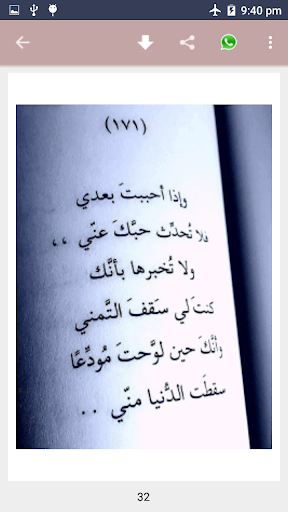 9:40 pm
(١٧١)
وإذا أحببتَ بعدي
فلا تُحدِّث حبَّكَ عنّي ،،
ولا تُخبرها بأنَّك
كنتَ لي سَقفَ التَّمني
وأنَّكَ حين لوَّحتَ مُودِّعًا
سقطَت الدُّنيا منّي ..
32